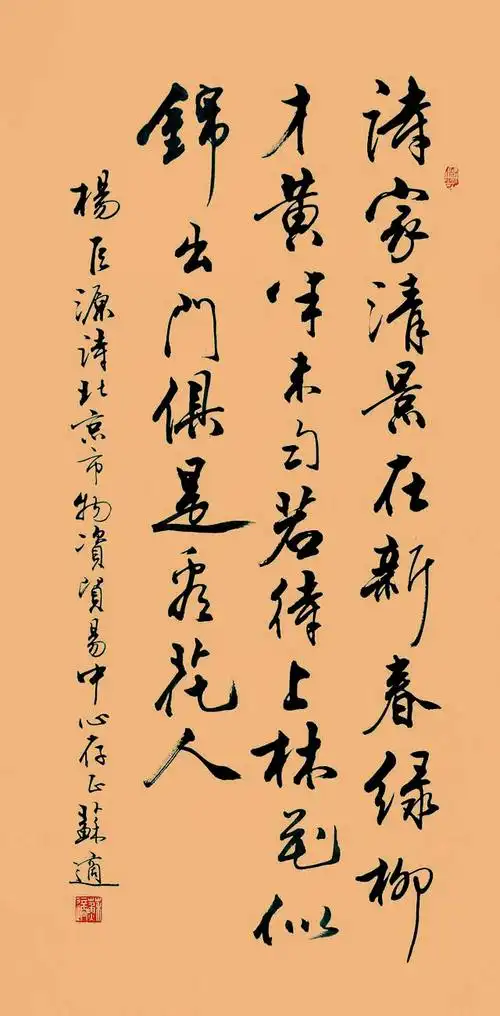 詩家清景在新春緑柳
才黄半未匀若待上林花似
錦出門俱是看花人
楊巨源詩北京市物資貿易中心存正蘇適